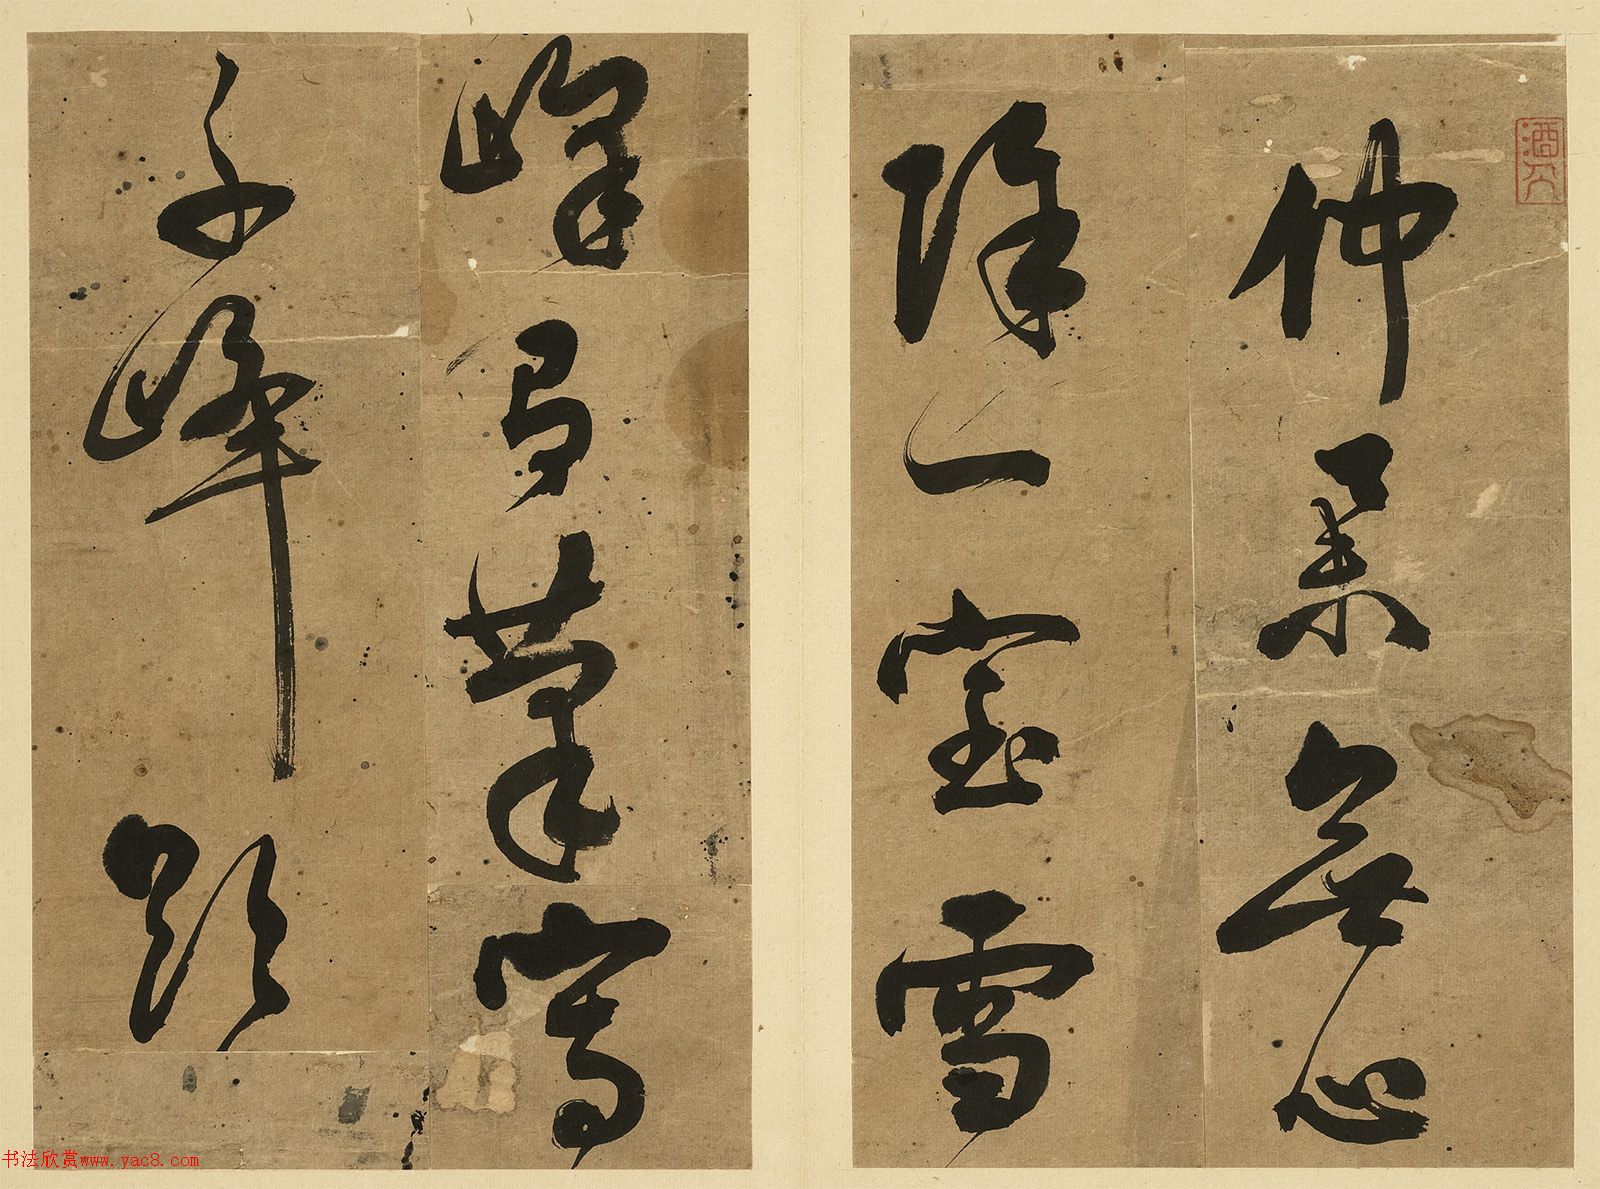 仲舉無心
除一室雪
峰筆寫
千峰
书法欣赏www.yac8.com